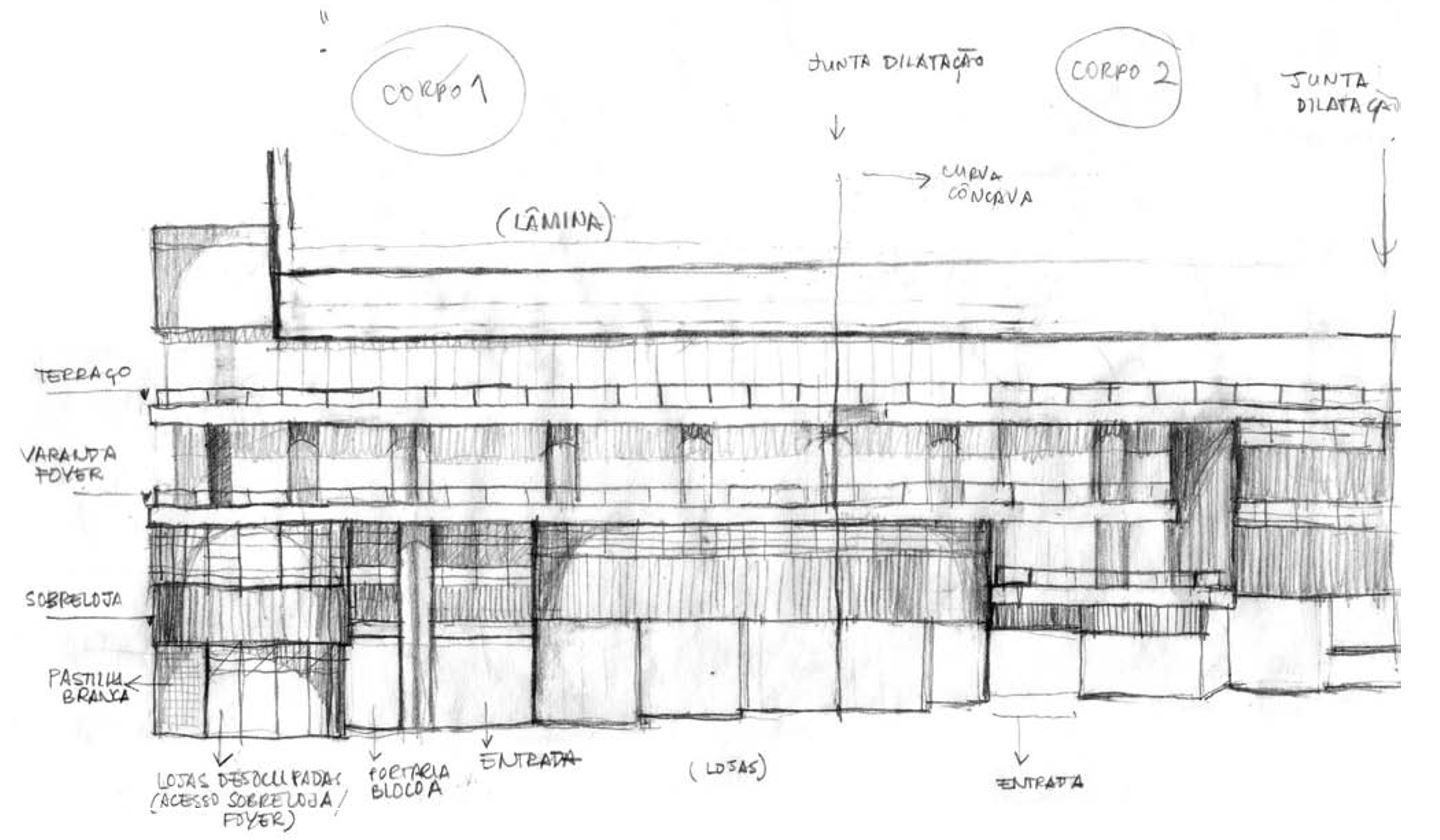 CORPO 1
JUNTA DILATAÇÃO
CORPO 2
JUNTA
DILATAÇÃO
CURVA
CÔNCAVA
(LÂMINA)
TERRAÇO
VARANDA
FOYER
SOBRELOJA
PASTILHA
BRANCA
LOJAS DESOCUPADAS
(ACESSO SOBRELOJA/
FOYER)
PORTARIA
BLOCO A
ENTRADA
(LOJAS)
ENTRADA